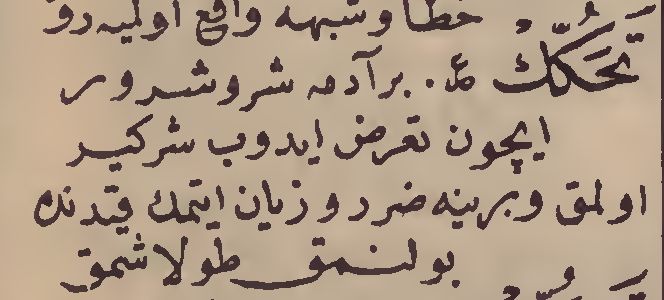 خطا وشبهه واقع اولميه رو
تَحَكُّكْ ع . بر آدمه شر و شرور
ايچون تعرض ايدوب شركير
اولمق وبرينه ضرر و زيان ايتمك قيدنده
بولنمق طولاشمق